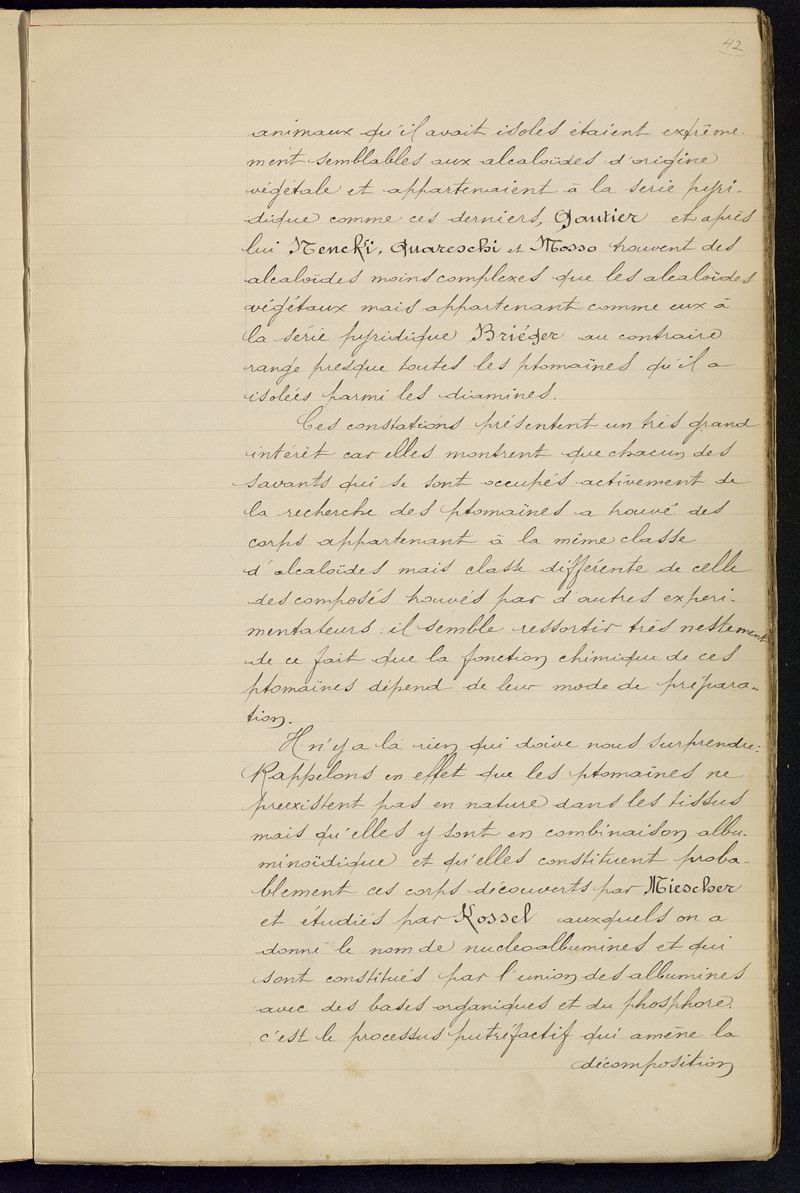 42
animaux qu'il avait isolés étaient extrême-
ment semblables aux alcaloïdes d'origine
végétale et appartenaient à la série pyri-
dique comme ces derniers, Gautier et après
lui Nencki, Guareschi et Mosso trouvent des
alcaloïdes moins complexes que les alcaloïdes
végétaux mais appartenant comme eux à
la série pyridique Briéger au contraire
range presque toutes les ptomaïnes qu'il a
isolées parmi les diamines.
Ces constations présentent un très grand
intérêt car elles montrent que chacun des
savants qui se sont occupés activement de
la recherche des ptomaïnes a trouvé des
corps appartenant à la même classe
d'alcaloïdes mais classe différente de celle
des composés trouvés par d'autres expéri-
mentateurs : il semble ressortir très nettement
de ce fait que la fonction chimique de ces
ptomaïnes dépend de leur mode de prépara-
tion.
Il n'y a là rien qui doive nous surprendre:
Rappelons en effet que les ptomaïnes ne
préexistent pas en nature dans les tissus
mais qu'elles y sont en combinaison albu-
minoïdique et qu'elles constituent proba-
blement ces corps découverts par Miescher
et étudiés par Kossel auxquels on a
donné le nom de nucleoalbumines et qui
sont constitués par l'union des albumines
avec des bases organiques et du phosphore.
c'est le processus putréfactif qui amène la
décomposition